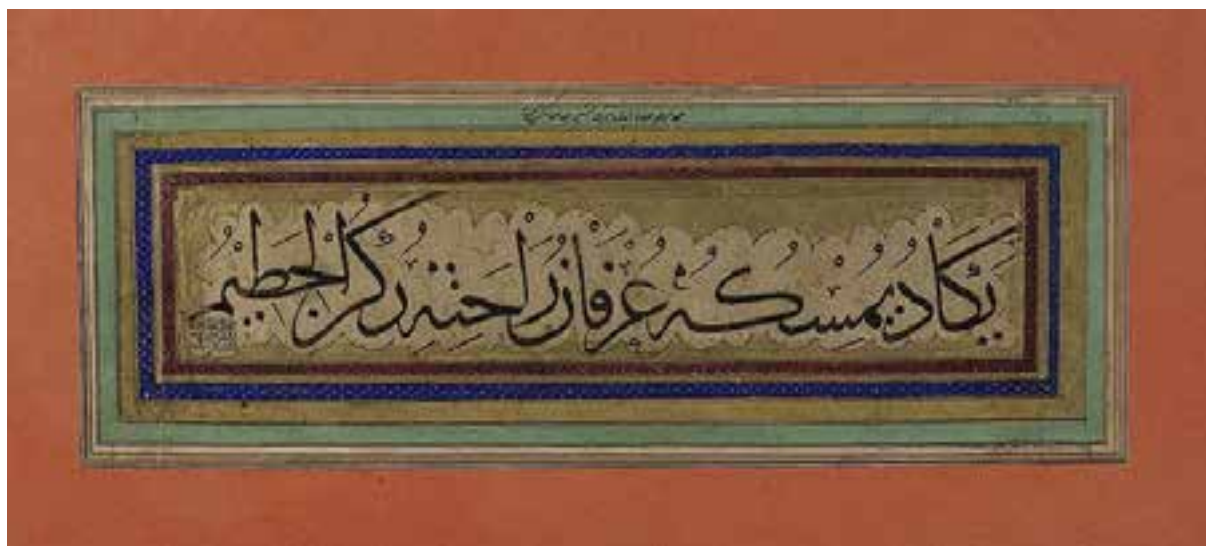 يَكَادُ يُمْسِكُهُ عِرْفَانُ رَاحَتِهِ رُكْنُ الْحَطِيْمِ